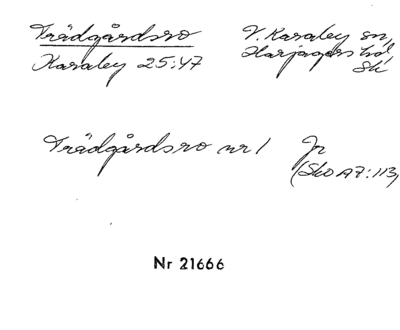 Trädgårdsro V. Karaby sn,
Karaby 25:47 Harjagers hd,
Sk
Trädgårdsro nr 1 Jr
(Sko A7:113)
Nr 21666